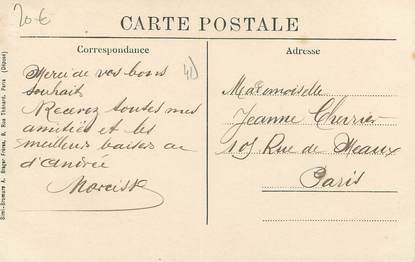 20€
CARTE POSTALE
Correspondance
Adresse
Merci de vos bons
souhaits
Recevez toutes mes
amitiés et les
meilleurs baisers
d'Andrée
Mademoiselle
Jeanne Cherrier
105 Rue de Meaux
Paris
Simi-Bromure A. Breger Frères, 9, Rue Thénard, Paris (Déposé)